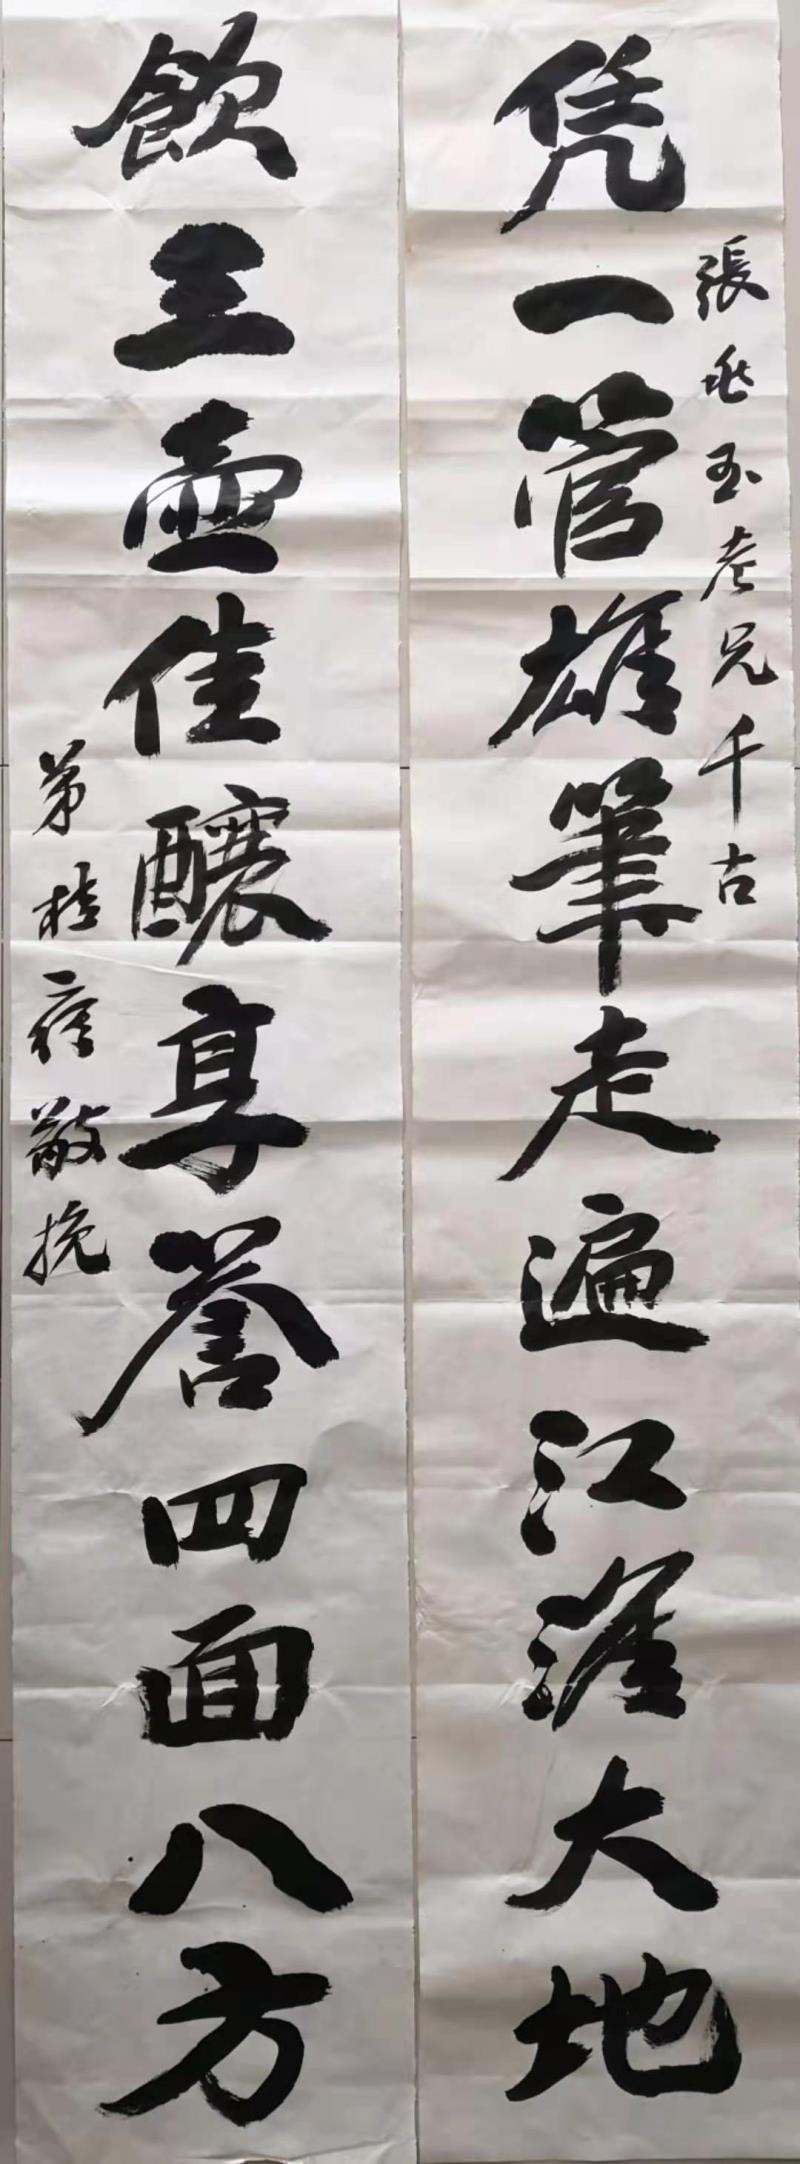 張兆玉老兄千古
凭一管雄筆走遍江淮大地
飲三壺佳釀享誉四面八方
弟桂敬挽